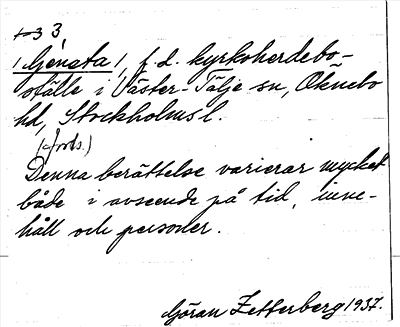 3
/Genata/, f.d. kyrkoherdebo-
ställe i Väster-Tälje sn, Öknebo
hd, Stockholms l.
(Forts.)
Denna berättelse varierar mycket
både i avseende på tid, inne-
håll och personer.
Göran Zetterberg 1937.